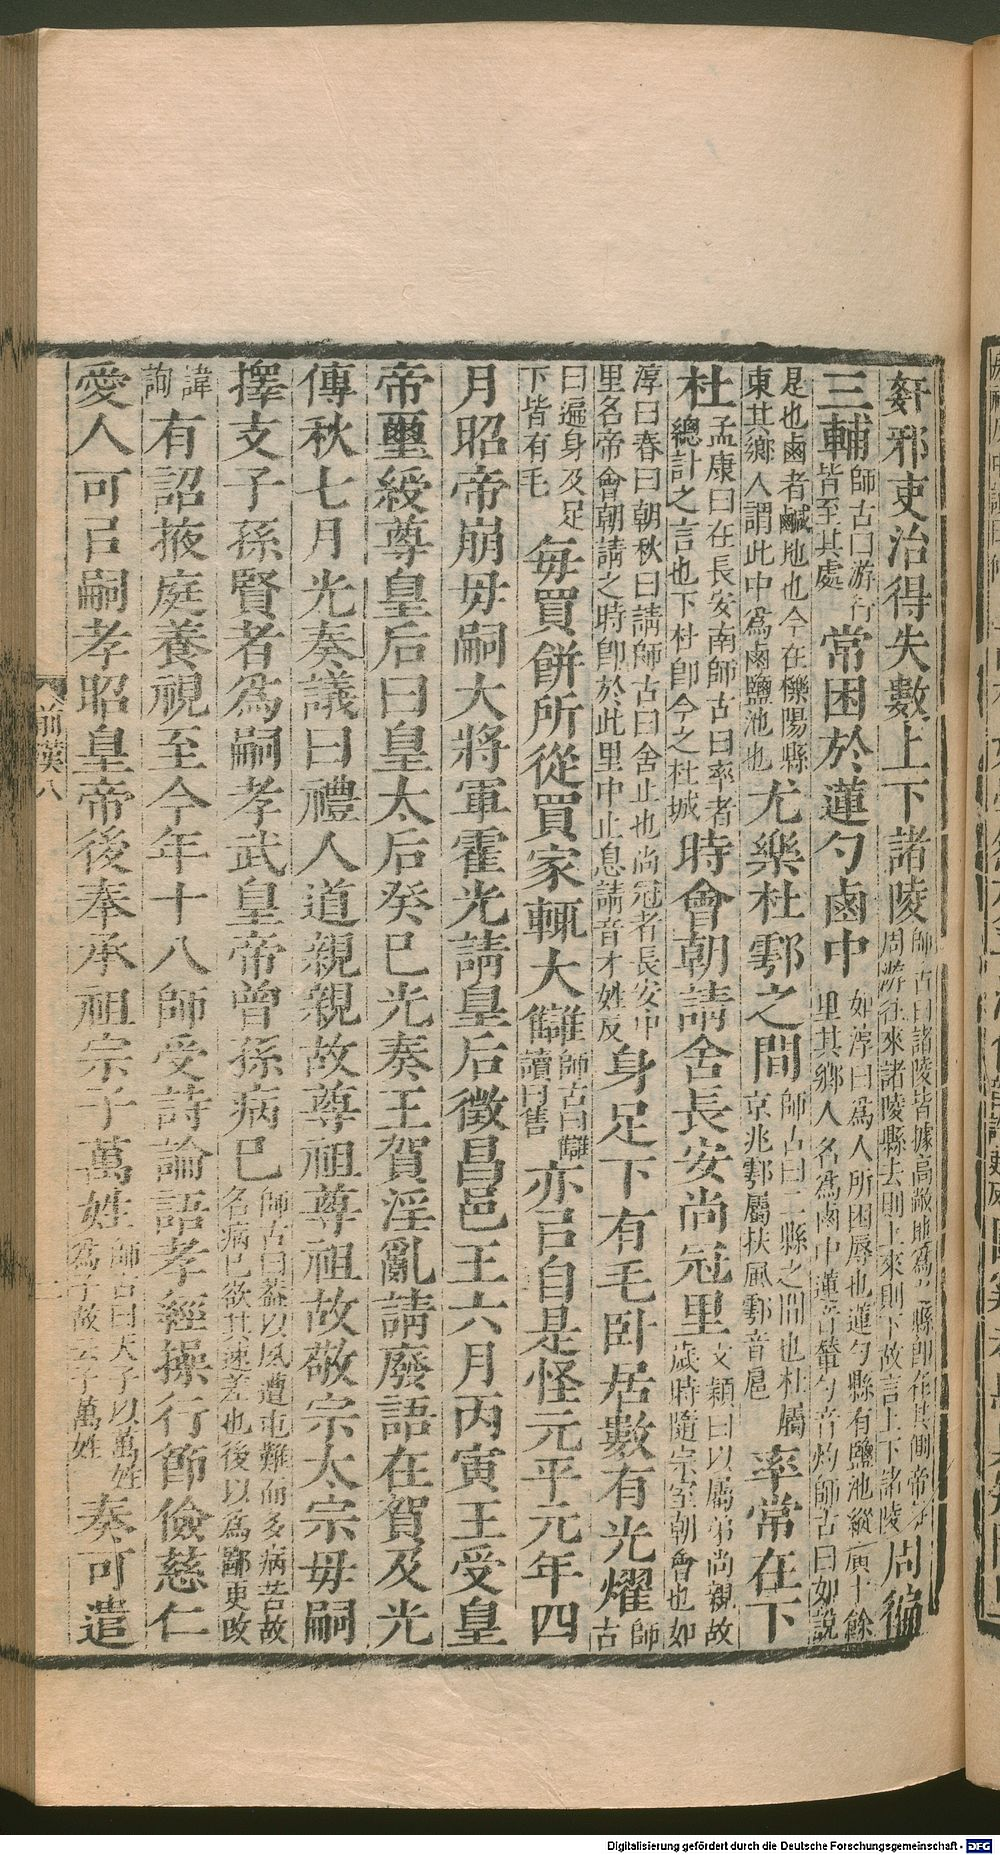 姧邪吏治得失數上下諸陵師古曰諸陵皆據高敞地爲之縣即在其側帝每周游往來諸陵縣去則上來則下故言上下諸陵周徧
三輔師古曰游行皆至其處常困於蓮勺鹵中如淳曰爲人所困辱也蓮勺縣有鹽池縱廣十餘里其鄉人名爲鹵中蓮音輦勺音灼師古曰如說
是也鹵者鹹地也今在櫟陽縣東其鄉人謂此中爲鹵鹽池也尤樂杜鄠之間師古曰二縣之間也杜屬京兆鄠屬扶風鄠音扈率常在下
杜孟康曰在長安南師古曰率者總計之言也下杜卽今之杜城時會朝請舍長安尚冠里文穎曰以屬弟尚親故歲時隨宗室朝會也如
淳曰春曰朝秋曰請師古曰舍止也尚冠者長安中里名帝會朝請之時卽於此里中止息請音才姓反身足下有毛卧居數有光燿師古
曰遍身及足下皆有毛每買餅所從買家輒大讎師古曰讎讀曰售亦㠯自是怪元平元年四
月昭帝崩毋嗣大將軍霍光請皇后徵昌邑王六月丙寅王受皇
帝璽綬尊皇后曰皇太后癸巳光奏王賀淫亂請廢語在賀及光
傳秋七月光奏議曰禮人道親親故尊祖尊祖故敬宗太宗毋嗣
擇支子孫賢者爲嗣孝武皇帝曾孫病已師古曰蓋以夙遭屯難而多病苦故名病已欲其速差也後以爲鄙更改
諱詢有詔掖庭養視至今年十八師受詩論語孝經操行節儉慈仁
愛人可㠯嗣孝昭皇帝後奉承祖宗子萬姓師古曰天子以萬姓爲子故云子萬姓奏可遣
前漢八
Digitalisierung gefördert durch die Deutsche Forschungsgemeinschaft - DFG